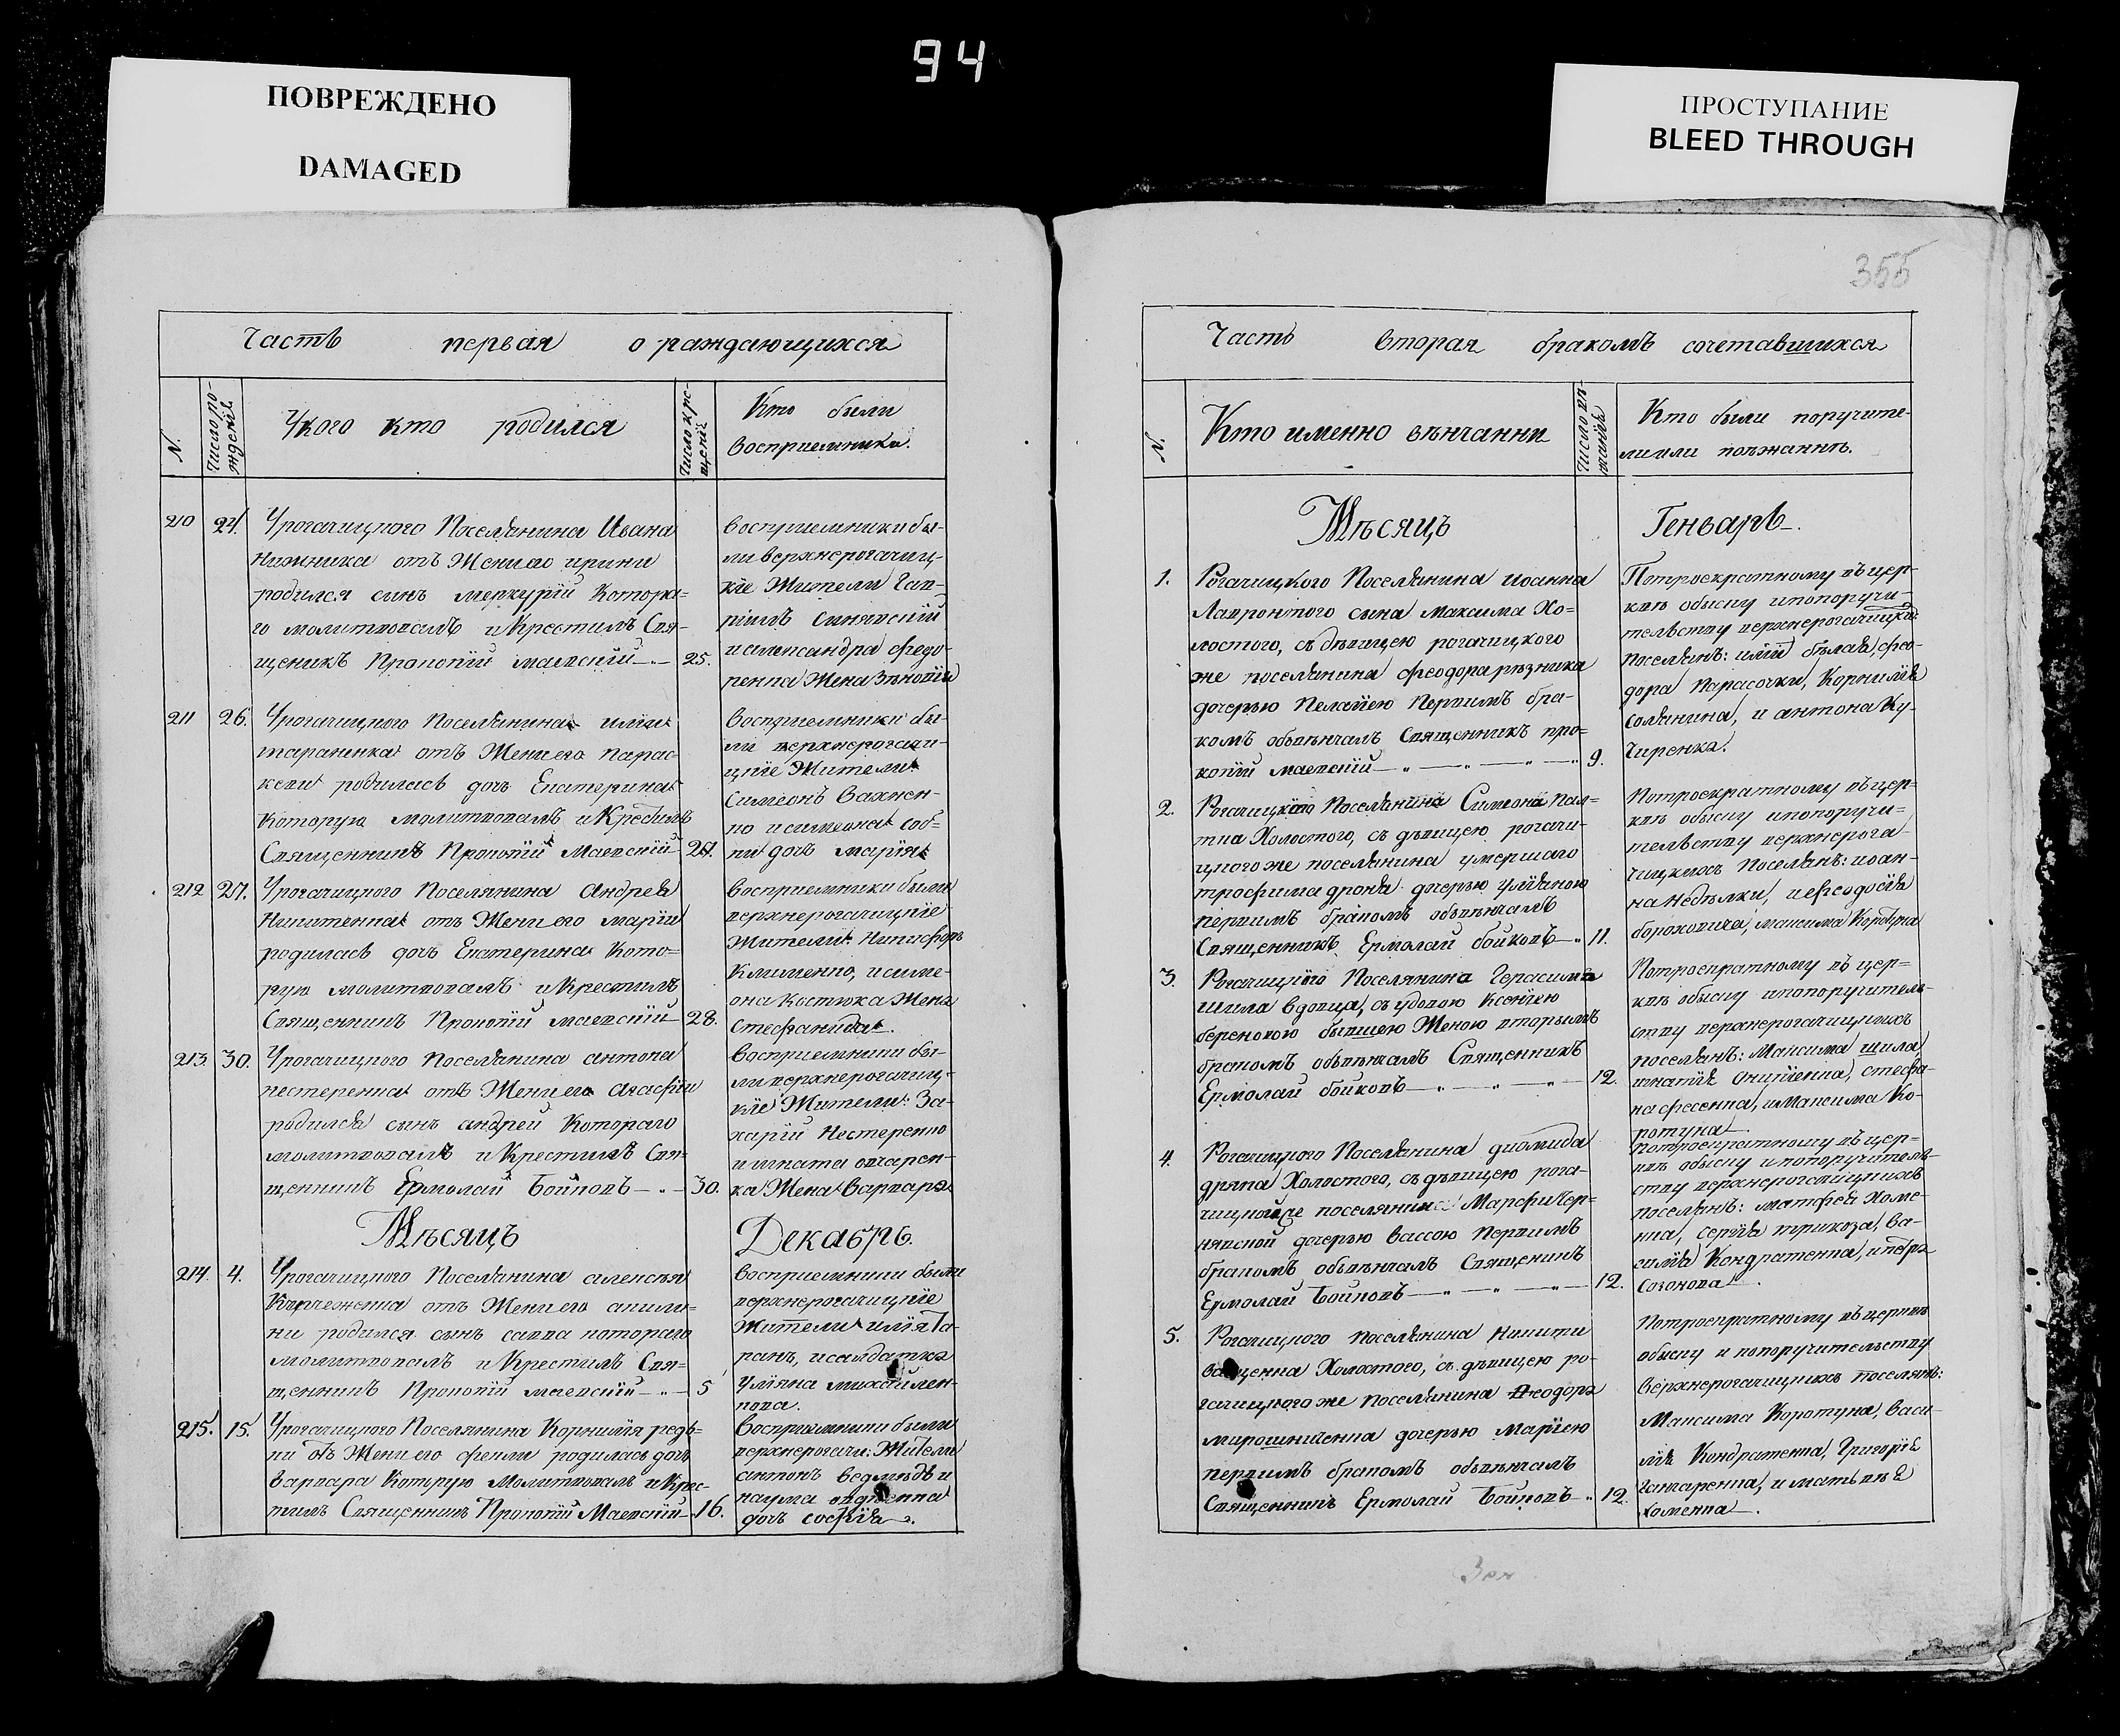 94
ПОВРЕЖДЕНО
DAMAGED
ПРОСТУПАНИЕ
BLEED THROUGH
Часть первая о раждающихся
N.
Число ро-
жденій
У кого кто родился
Число кре-
щенія
Кто были
восприемники.
210
24.
У рогачицкого Поселянина Ивана
отъ Жени его ирини
родился синъ меркурій Котора=
го молитвовалъ и Крестилъ Свя-
щеникъ Прокопій маевскій
25.
восприемники бы-
ли верхнерогачиц-
кіе Жители Гав-
ріилъ Синявскій
и александра федо-
ренка Жена Зѣновіи
211
26.
У рогачицкого Поселянина иліи
тараненка отъ Жени его парас-
кеви родилась дочь Екатерина
Которую молитвовалъ и Крестилъ
Священникъ Прокопій Маевскій
27.
восприемники бы-
ли верхнерогачи-
цкіе Жители
Симеонъ Вахнен-
ко и симеона соб-
ки дочь марія
212
27.
У рогачицкого Поселянина Андрея
Никитенка отъ Жени его маріи
родилась дочь Екатерина Кото=
рую молитвовалъ и Крестилъ
Священникъ Прокопій маевскій
28.
восприемники были
верхнерогачицкіе
Жители: Никифоръ
Клименко, и симе-
она Костюка Жена
Стефанида.
213.
30.
У рогачицкого Поселянина антона
нестеренка отъ Жени его агафіи
родился синъ андрей Котораго
молитвовалъ и Крестилъ Свя-
щенникъ Ермолай Бойковъ
30.
восприемники бы-
ли верхнерогачиц-
кіе Жители: За-
харій Нестеренко
и игната овчарен-
ка Жена Варвара
Мѣсяцъ
Декабрь.
214.
4.
У рогачицкого Поселянина алексѣя
отъ Жени его акили-
ни родился синъ савва котораго
молитвовалъ и Крестилъ Свя=
щенникъ Прокопій маевскій
5
восприемники были
верхнерогачицкіе
Жители илія Та-
ранъ, и салдатка
Уліяна михайлен-
кова.
215.
15.
У рогачицкого Поселянина Корнилія редь=
ки отъ Жени его феклы родилась дочь
варвара Которую Молитвовалъ и Крес-
тилъ Священникъ Прокопій Маевскій
16.
восприемники были
верхнерогачи: Жители
антонъ ведмѣдь и
наума
дочь софія.
355
Часть вторая бракомъ сочетавшихся
N.
Число вѣ-
нчанія
Кто именно вѣнчанни
Кто были поручите-
ли или поѣжаннѣ.
Мѣсяцъ
Геньварь.
1.
Рогачицкого Поселянина иоанна
Лавронтого сына максима Хо=
лостого, съ дѣвицею рогачицкого
же поселянина феодора рѣзника
дочерью Пелагіею Первимъ бра-
комъ обвѣнчалъ Священникъ про=
копій маевскій
9.
По троекратному въ цер-
квѣ обыску и по поручи-
тельству верхнерогачицких
Поселянъ: иліи бѣлая, фео-
дора Парасочки, Корнилія
Солянина, и антона Ку-
чиренка.
2.
Рогачицкого Поселянина Симеона пал=
тна Холостого, съ дѣвицею рогачи-
цкого же поселянина умершаго
трофима дочерью уліяною
первимъ бракомъ обвѣнчалъ
Священникъ Ермолай бойковъ
11.
По троекратному въ цер-
квѣ обыску и по поручи-
тельству верхнерога-
чицкихъ Поселянъ: иоан-
на недѣлки, и феодосія
бороховича, максима Коротуна
3.
Рогачицкого Поселянина Герасима
шила вдовца, съ удовою Ксеніею
береновою бывшею Женою вторымъ
бракомъ обвѣнчалъ Священникъ
Ермолай бойковъ
12.
По троекратному въ цер=
квѣ обыску и по поручитель-
ству верхнерогачицкихъ
поселянъ: Максима шила,
игнатія Онищенка, стефа-
на фесенка, и Максима Ко-
ротуна
4.
Рогачицкого Поселянина диомида
дряпа Холостого, съ дѣвицею рога-
чицкого же поселянина Марфи Чер=
нявской дочерью вассою Первимъ
бракомъ обвѣнчалъ Священникъ
Ермолай Бойковъ
12.
По троекратному въ цер=
квѣ обыску и по поручитель-
ству верхнерогачицкихъ
поселянъ: матфея Хоме-
нка, сергія трикоза, Ва-
силія Кондратенка, и петра
Созонова
5.
Рогачицкого Поселянина Никити
Холостого, съ дѣвицею ро-
гачицкого же Поселянина Феодора
мирошниченка дочерью Маріею
первимъ бракомъ обвѣнчалъ
Священникъ Ермолай Бойковъ
12.
По троекратному въ церквѣ
обыску и по поручительству
верхнерогачицкихъ поселянъ:
Максима Коротуна, васи-
лія Кондратенка, Григорія
Гончаренка, и матвѣя
Хоменка.